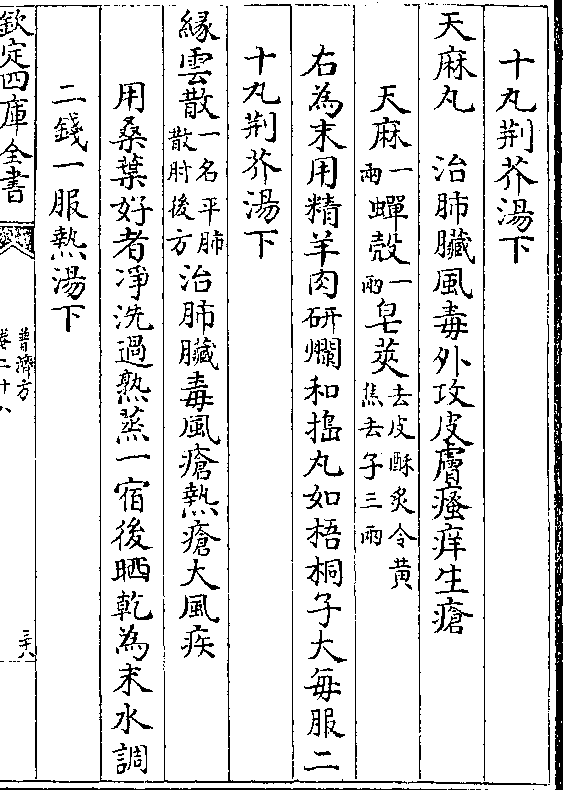 十丸荆芥湯下
天麻丸　治肺臟風毒外攻皮膚瘙痒生瘡
天麻一兩蟬殼一兩皂莢去皮酥炙令黄焦去子三兩
右為末用精羊肉研爛和搗丸如梧桐子大每服二
十丸荆芥湯下
緣雲散一名平肺散肘後方治肺臟毒風瘡熱瘡大風疾
用桑葉好者凈洗過熟蒸一宿後晒乾為末水調
二錢一服熱湯下
欽定四庫全書
普濟方
卷二十八